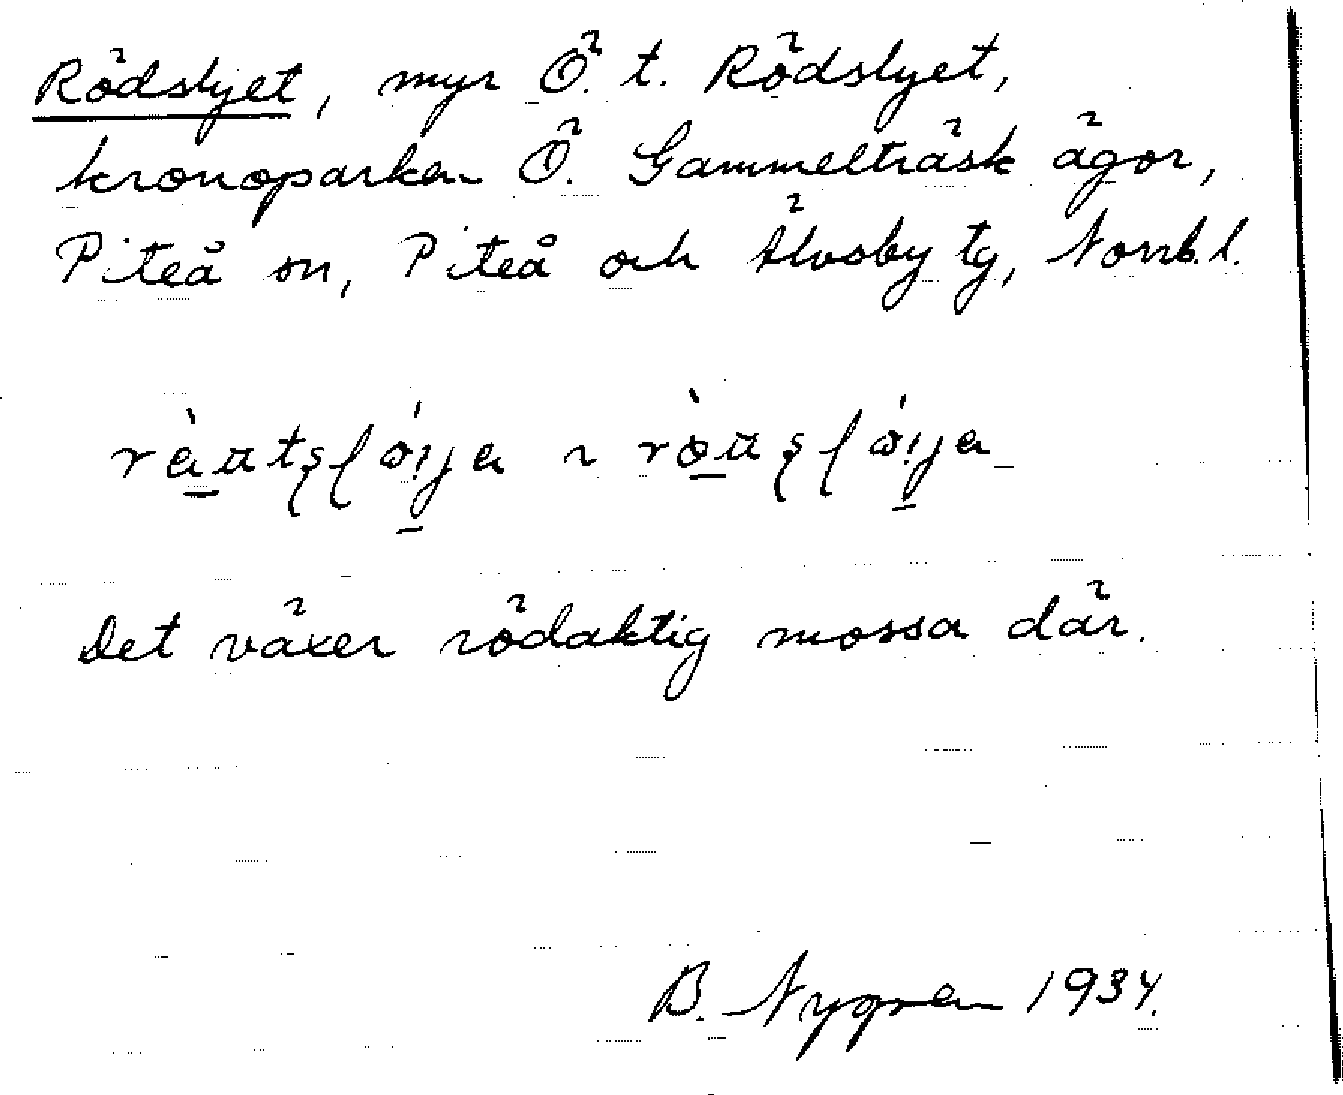 Rödslyet, myr Ö. t. Rödslyet,
kronoparken Ö. Gammelträsk ägor,
Piteå sn, Piteå och Älvsby tg, Norrb. l.
Det växer rödaktig mossa där.
B. Nygren 1934.